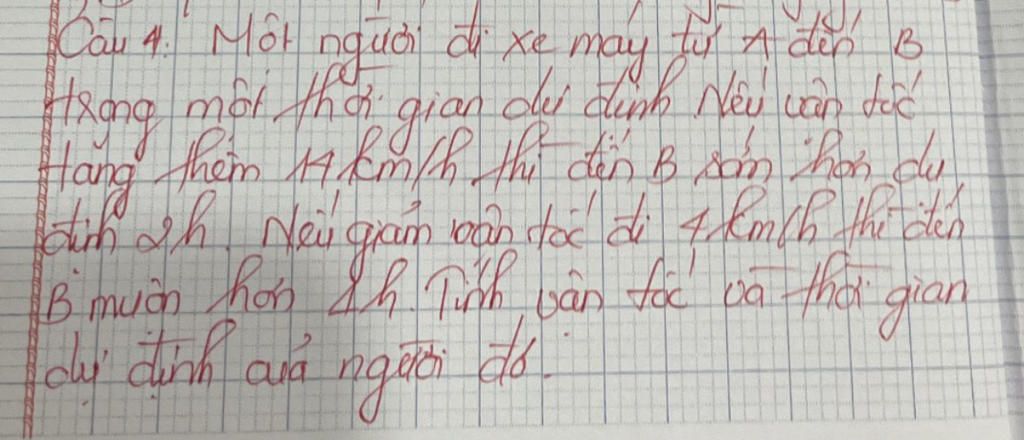 Câu 4. Một người đi xe máy từ A đến B
trong một thời gian dự định Nếu vận tốc
tăng thêm 14 km/h thì đến B sớm hơn dự
định 2h. Nếu giảm vận tốc đi 4 km/h thì đến
B muộn hơn 1h. Tính vận tốc và thời gian
dự định của người đó.